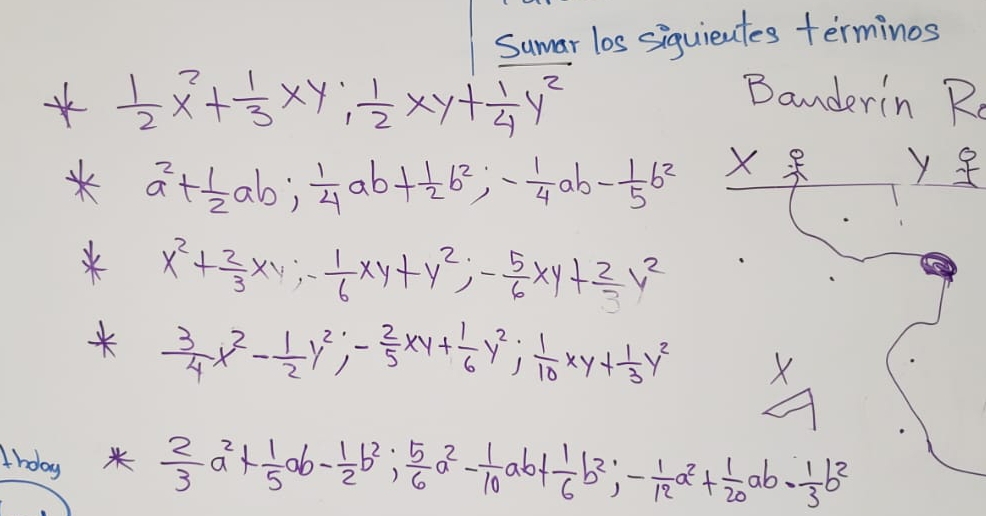 Sumar los siguientes términos
* 1/2 x² + 1/3 xy ; 1/2 xy + 1/4 y²
Banderín
* a² + 1/2 ab ; 1/4 ab + 1/2 b² ; - 1/4 ab - 1/5 b²
X y
* x² + 2/3 xy ; - 1/6 xy + y² ; - 5/6 xy + 2/3 y²
* 3/4 x² - 1/2 y² ; - 2/5 xy + 1/6 y² ; 1/10 xy + 1/3 y²
X
* 2/3 a² + 1/5 ab - 1/2 b² ; 5/6 a² - 1/10 ab + 1/6 b² ; - 1/12 a² + 1/20 ab - 1/3 b²